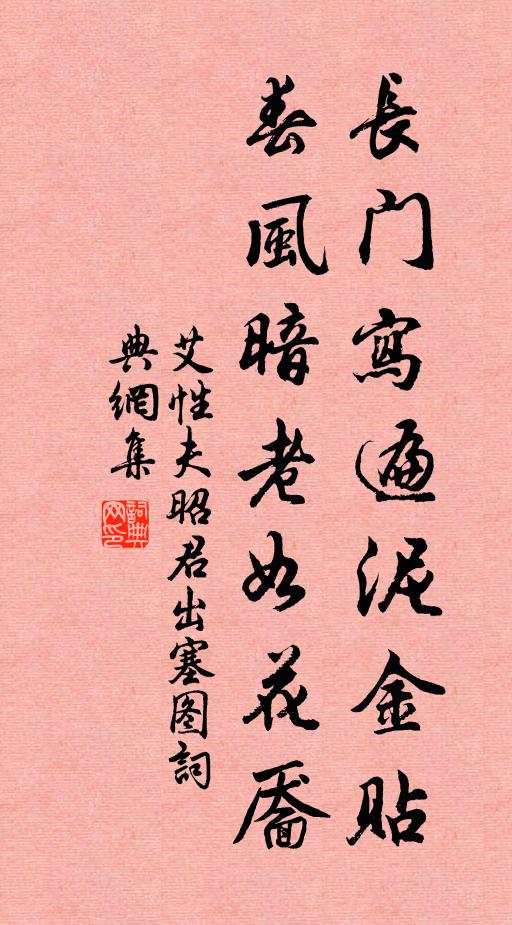 長門寫遍泥金貼
春風暗老如花靨
艾性夫昭君出塞图詞
典網集
詞典网印